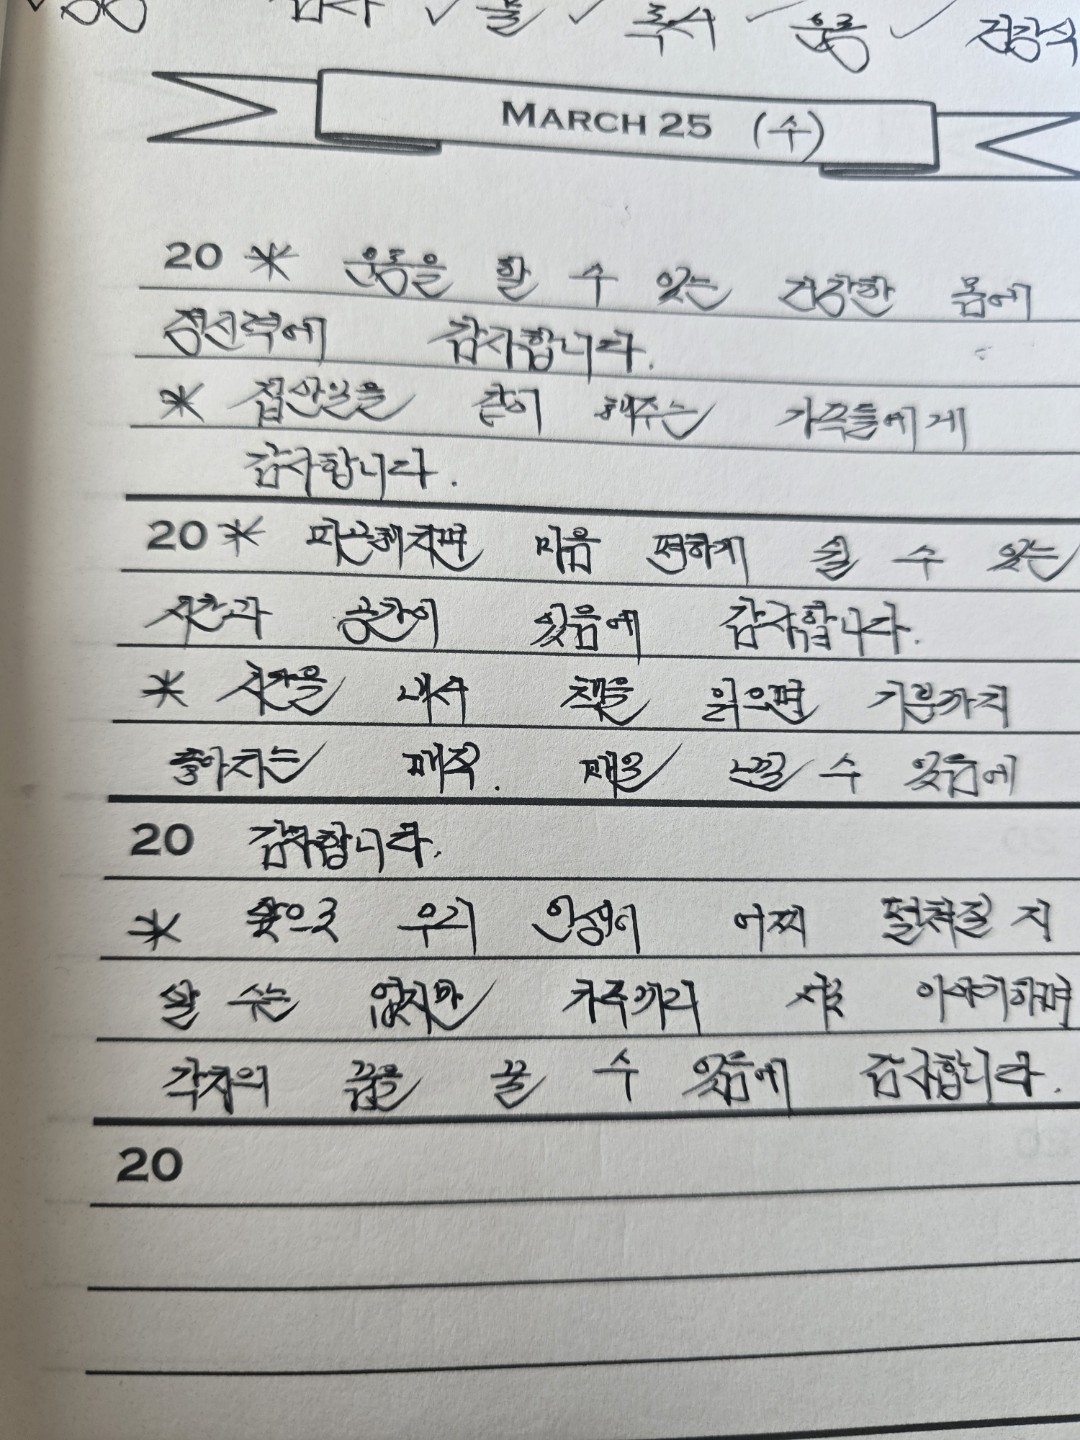 감사 ✓ 물 ✓ 독서 ✓ 운동 ✓ 건강식
MARCH 25 (수)
20 * 운동을 할 수 있는 건강한 몸에
정신력에 감사합니다.
* 집안일을 같이 해주는 가족들에게
감사합니다.
20 * 피곤해지면 마음 편하게 쉴 수 있는
시간과 공간이 있음에 감사합니다.
* 시간을 내서 책을 읽으면 기분까지
좋아지는 매직. 매일 느낄 수 있음에
20 감사합니다.
* 앞으로 우리 인생이 어찌 펼쳐질 지
알 수는 없지만 가족끼리 서로 이야기하며
각자의 꿈을 꿀 수 있음에 감사합니다.
20